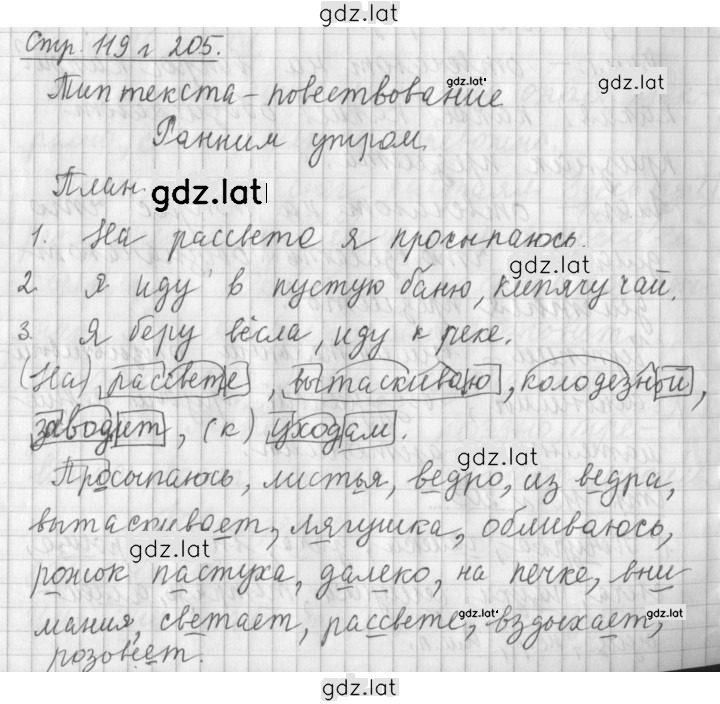 gdz.lat
Стр. 119 г 205.
gdz.lat
gdz.lat
Тип текста – повествование
Ранним утром.
План.
gdz.lat
1. На рассвете я просыпаюсь.
gdz.lat
2. Я иду в пустую баню, кипячу чай.
3. Я беру вёсла, иду к реке.
(На) рассвете, вытаскиваю, колодезной,
заводит, (к) уходам.
gdz.lat
Просыпаюсь, листья, ведро, из ведра,
вытаскивает, лягушка, обливаюсь,
gdz.lat
рожок пастуха, далеко, на печке, вни
gdz.lat
gdz.lat
мания, светает, рассвете, вздыхает,
розовеет.
gdz.lat